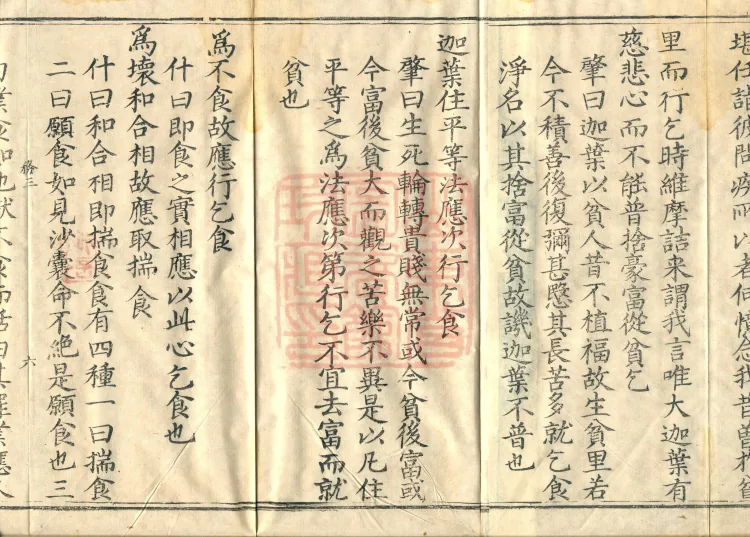 堪任詣彼問疾所以者何憶念我昔曾於貧
里而行乞時維摩詰来謂我言唯大迦葉有
慈悲心而不能普捨豪富從貧乞
肇曰迦葉以貧人昔不植福故生貧里若
今不積善後復彌甚愍其長苦多就乞食
淨名以其捨富從貧故譏迦葉不普也
迦葉住平等法應次行乞食
肇曰生死輪轉貴賤無常或今貧後富或
今富後貧大而觀之苦樂不異是以凡住
平等之為法應次第行乞不宜去富而就
貧也
為不食故應行乞食
什曰即食之實相應以此心乞食也
為壞和合相故應取揣食
什曰和合相即揣食食有四種一曰揣食
二曰願食如見沙囊命不絶是願食也三
六